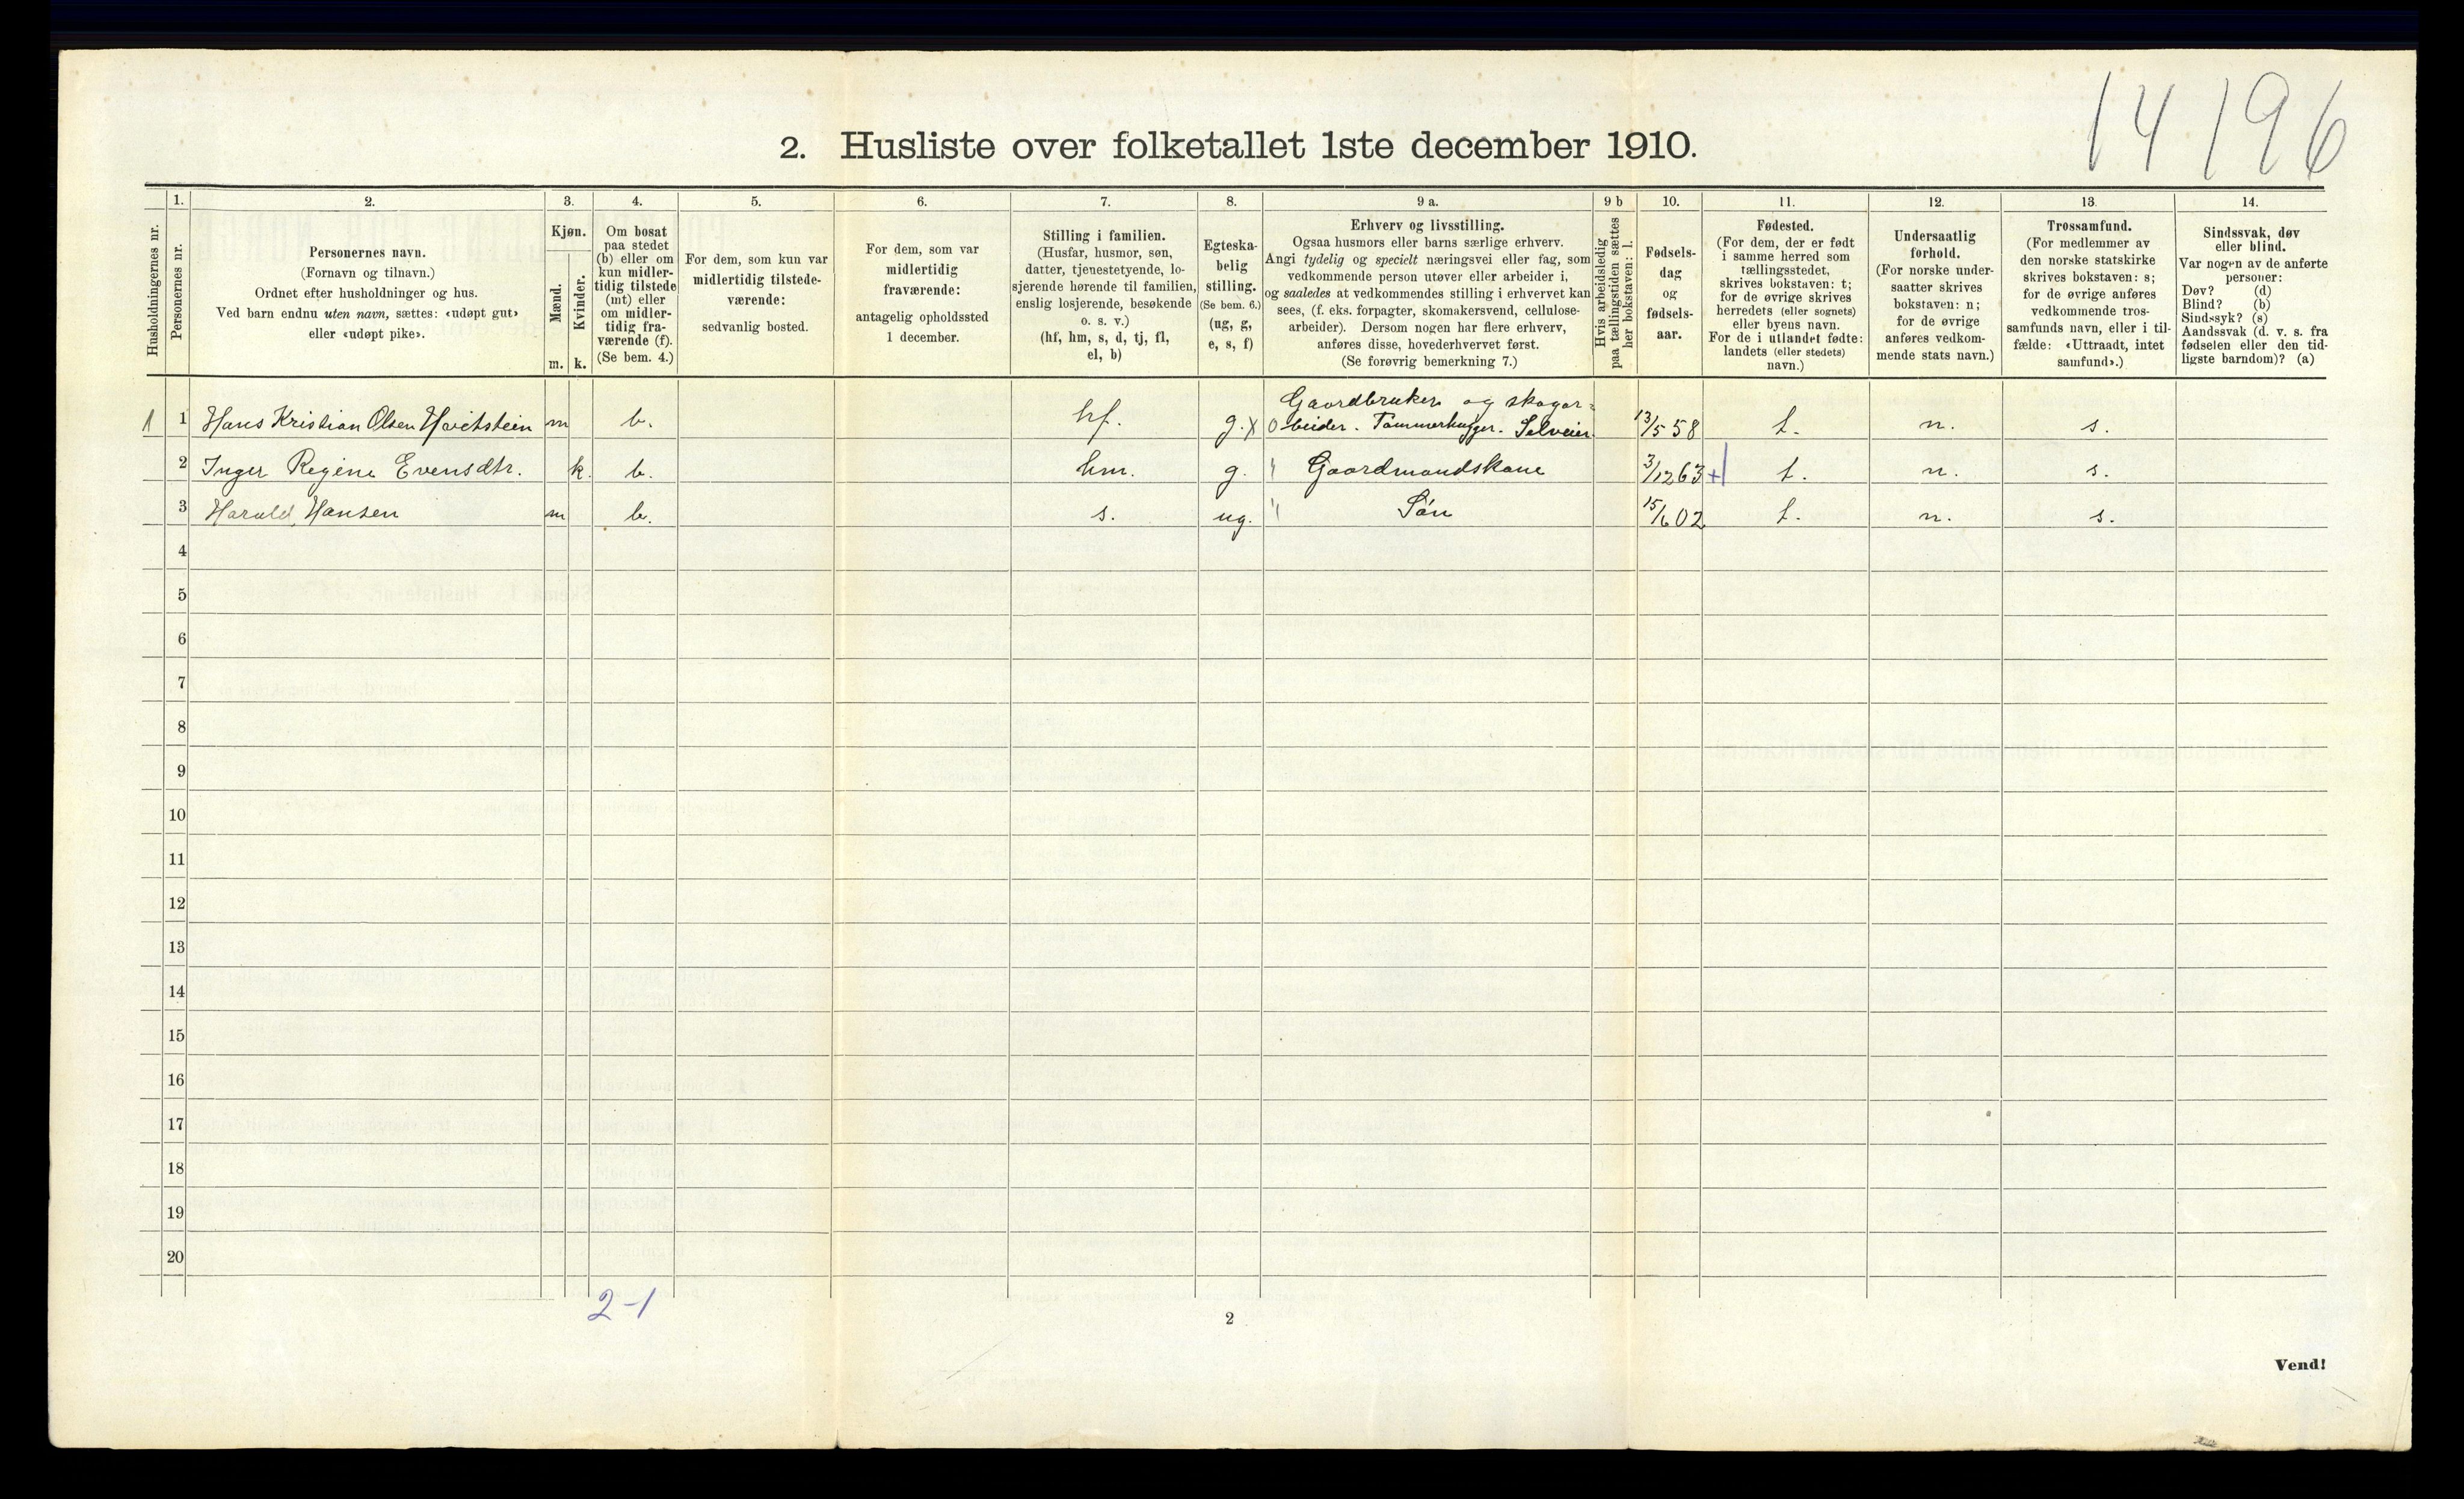 14196
2. Husliste over folketallet 1ste december 1910.
Husholdningernes nr.
1.
Personernes nr.
2.
Personernes navn.
(Fornavn og tilnavn.)
Ordnet efter husholdninger og hus.
Ved barn endnu uten navn, sættes: «udøpt gut»
eller «udøpt pike».
3.
Kjøn.
Mænd.
m.
Kvinder.
k.
4.
Om bosat
paa stedet
(b) eller om
kun midler-
tidig tilstede
(mt) eller
om midler-
tidig fra-
værende (f).
(Se bem. 4.)
5.
For dem, som kun var
midlertidig tilstede-
værende:
sedvanlig bosted.
6.
For dem, som var
midlertidig
fraværende:
antagelig opholdssted
1 december.
7.
Stilling i familien.
(Husfar, husmor, søn,
datter, tjenestetyende, lo-
sjerende hørende til familien,
enslig losjerende, besøkende
o. s. v.)
(hf, hm, s, d, tj, fl,
el, b)
8.
Egteska-
belig
stilling.
(Se bem. 6.)
(ug, g,
e, s, f)
9 a.
Erhverv og livsstilling.
Ogsaa husmors eller barns særlige erhverv.
Angi tydelig og specielt næringsvei eller fag, som
vedkommende person utøver eller arbeider i,
og saaledes at vedkommendes stilling i erhvervet kan
sees, (f. eks. forpagter, skomakersvend, cellulose-
arbeider). Dersom nogen har flere erhverv,
anføres disse, hovederhvervet først.
(Se forøvrig bemerkning 7.)
9 b
Hvis arbeidsledig
paa tællingstiden sættes
her bokstaven: l.
10.
Fødsels-
dag
og
fødsels-
aar.
11.
Fødested.
(For dem, der er født
i samme herred som
tællingsstedet,
skrives bokstaven: t;
for de øvrige skrives
herredets (eller sognets)
eller byens navn.
For de i utlandet fødte:
landets (eller stedets)
navn.)
12.
Undersaatlig
forhold.
(For norske under-
saatter skrives
bokstaven: n;
for de øvrige
anføres vedkom-
mende stats navn.)
13.
Trossamfund.
(For medlemmer av
den norske statskirke
skrives bokstaven: s;
for de øvrige anføres
vedkommende tros-
samfunds navn, eller i til-
fælde: «Uttraadt, intet
samfund».)
14.
Sindssvak, døv
eller blind.
Var nogen av de anførte
personer:
Døv? (d)
Blind? (b)
Sindssyk? (s)
Aandssvak (d. v. s. fra
fødselen eller den tid-
ligste barndom)? (a)
Gaardbruker og skogar-
1 1 Hans Kristian Olsen m b. hf. g. x o beider. Tømmerhugger. Selveier. 13/5 58 t. n. s.
2 Inger Regine Evensdtr. k. b. hm. g. " Gaardmandskone 3/12 63 + t. n. s.
3 Harald Hansen m b. s. ug. " Søn 15/6 02 t. n. s.
4
5
6
7
8
9
10
11
12
13
14
15
16
17
18
19
20
2-1
2
Vend!